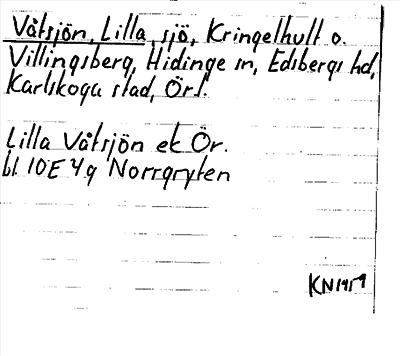 Våtsjön, Lilla, sjö, Kringelhult o.
Villingsberg, Hidinge sn, Edsbergs hd,
Karlskoga stad, Örl.
Lilla Våtsjön ek Ör.
bl 10E 4g Norrgryten
KN1959